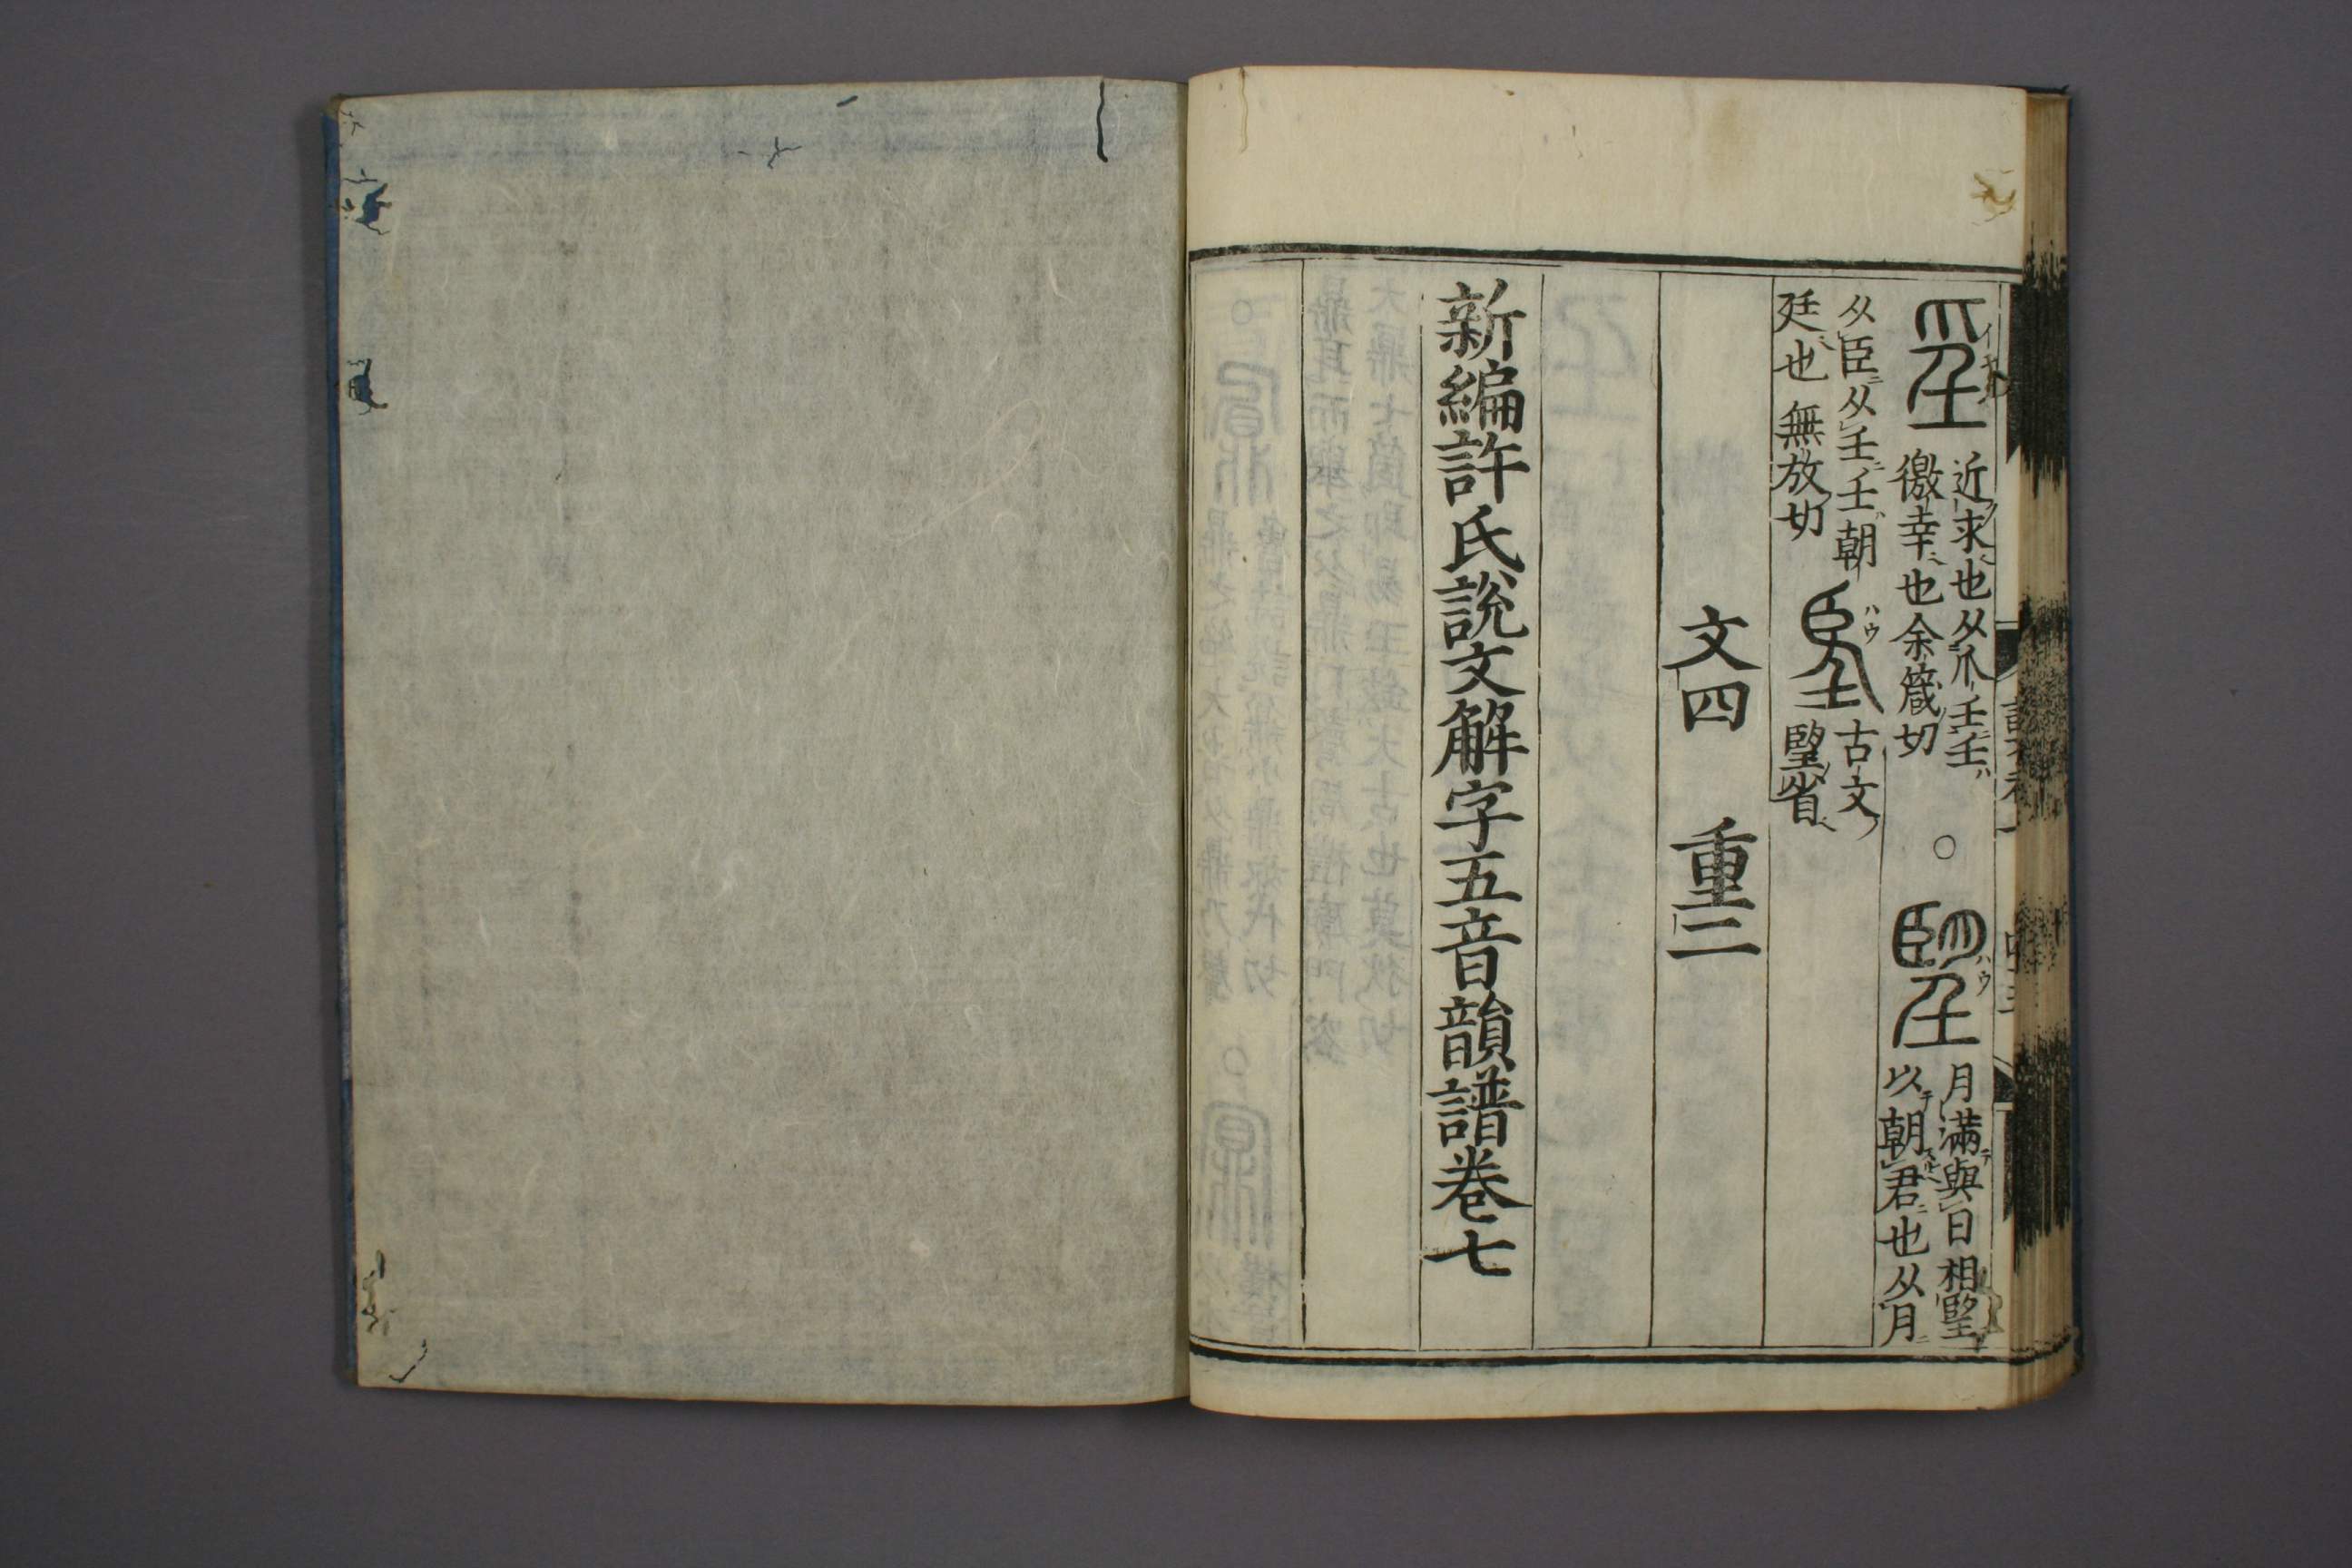 𡈼 近求也从爪壬壬
徼幸也余箴切
○
朢 月滿與日相朢
以朝君也从月
从臣从壬壬朝
廷也無放切
𦣠 古文
朢省
文四 重二
新編許氏說文解字五音韻譜卷七